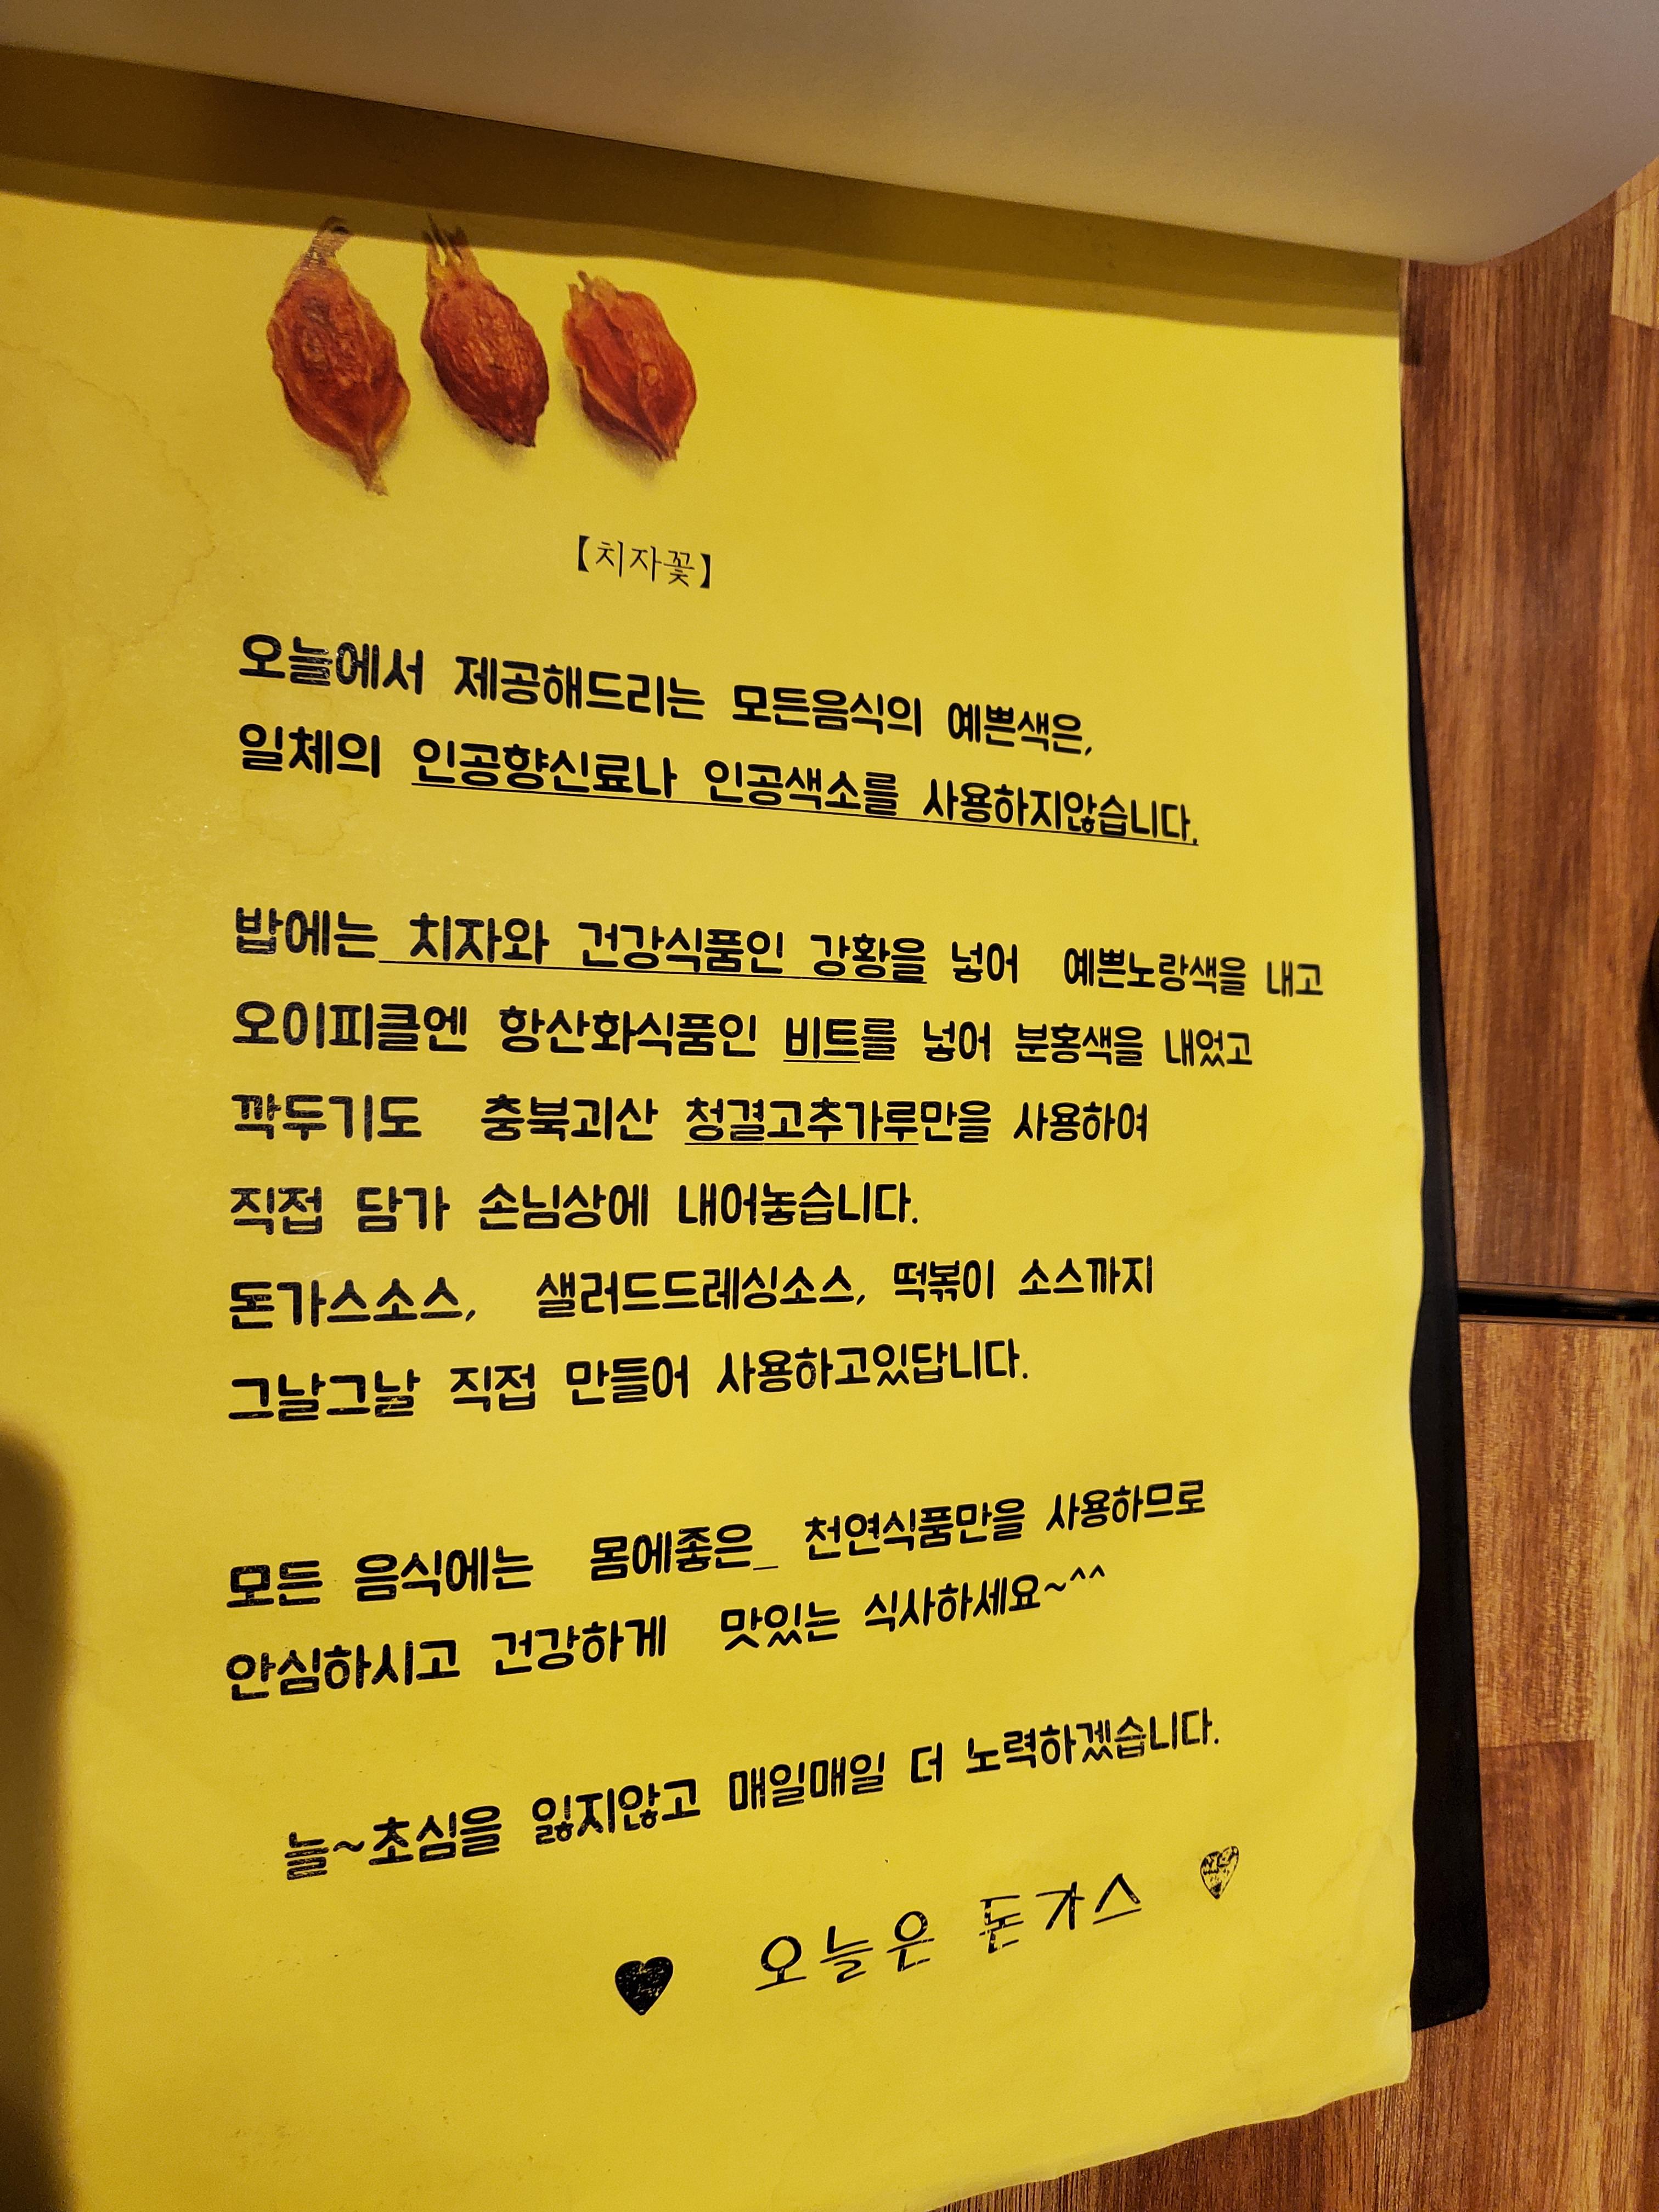 【치자꽃】
오늘에서 제공해드리는 모든음식의 예쁜색은,
일체의 인공향신료나 인공색소를 사용하지않습니다.
밥에는 치자와 건강식품인 강황을 넣어 예쁜노랑색을 내고
오이피클엔 항산화식품인 비트를 넣어 분홍색을 내었고
깍두기도 충북괴산 청결고추가루만을 사용하여
직접 담가 손님상에 내어놓습니다.
돈가스소스, 샐러드드레싱소스, 떡볶이 소스까지
그날그날 직접 만들어 사용하고있답니다.
모든 음식에는 몸에좋은_ 천연식품만을 사용하므로
안심하시고 건강하게 맛있는 식사하세요~^^
늘~초심을 잃지않고 매일매일 더 노력하겠습니다.
♥ 오늘은 돈가스 ♥